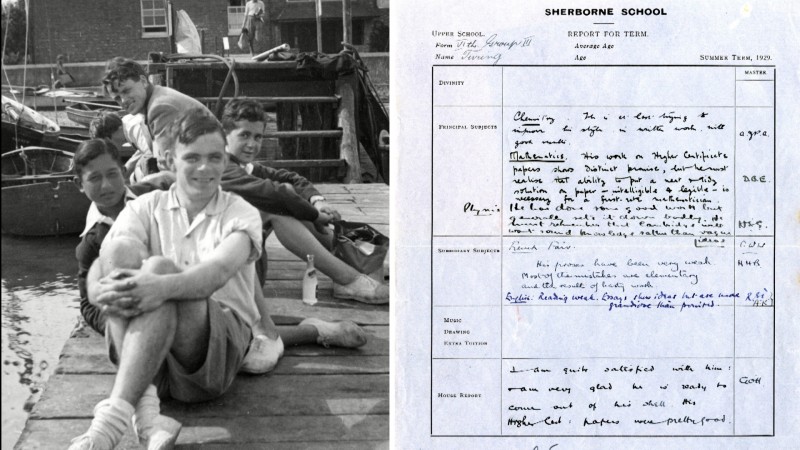 SHERBORNE SCHOOL
UPPER SCHOOL.
REPORT FOR TERM.
Form VIth Group III
Average Age
Name Turing
Age
SUMMER TERM, 1929.
MASTER
DIVINITY
PRINCIPAL SUBJECTS
Chemistry. He is at last trying to
improve his style in written work, with
good results.
Mathematics. His work on Higher Certificate
papers shows distinct promise, but he must
realise that ability to put a neat & tidy
solution on paper – intelligible & legible – is
necessary for a first-rate mathematician.
D.B.E.
Physics He has done some good work but
generally sets it down badly. He
must remember that Cambridge will
want sound knowledge rather than vague
ideas
SUBSIDIARY SUBJECTS
French Fair.
His proses have been very weak.
Most of the mistakes are elementary
and the result of hasty work.
English: Reading weak. Essays show ideas but are more
grandiose than
MUSIC
DRAWING
EXTRA TUITION
HOUSE REPORT
I am quite satisfied with him:
& am very glad he is ready to
come out of his shell. His
Higher Cert: papers were pretty good.